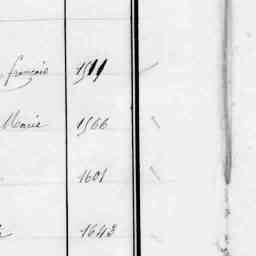 françois 1511
Marie 1566
1601
1643